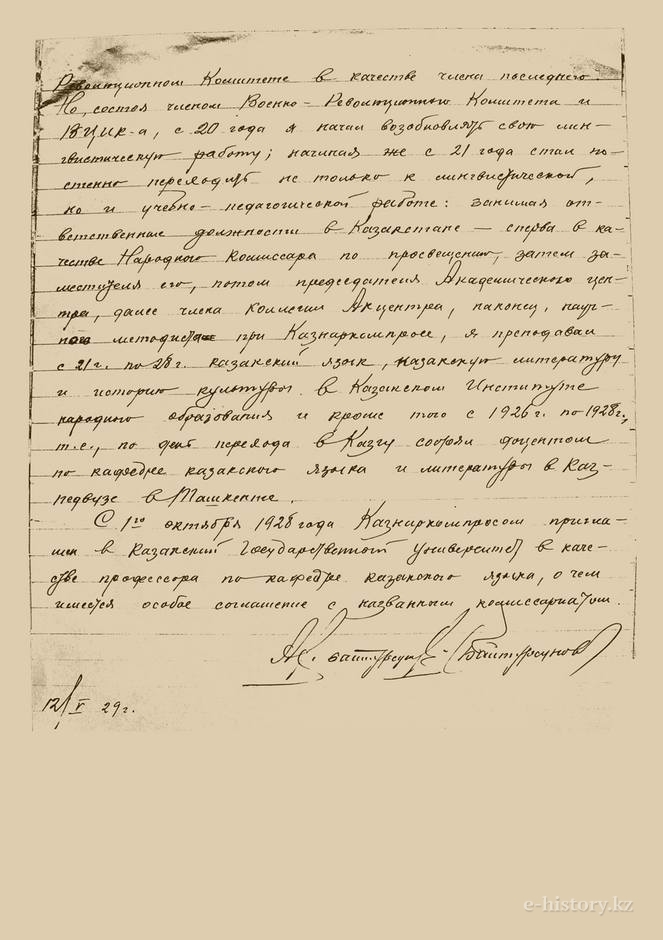 Революционном Комитете в качестве члена последнего.
Но, состоя членом Военно-Революционного Комитета и
ВЦИК-а, с 20 года я начал возобновлять свою лин-
гвистическую работу; начиная же с 21 года стал по-
степенно переходить не только к лингвистической,
но и учебно-педагогической работе: занимая от-
ветственные должности в Казакстане — сперва в ка-
честве Народного Комиссара по просвещению, затем за-
местителя его, потом председателя Академического цен-
тра, далее члена коллегии Акцентра, наконец, науч-
ного методиста при Казнаркомпросе, я преподавал
с 21 г. по 28 г. казакский язык, казакскую литературу
и историю культуры в Казакском Институте
народного образования и кроме того с 1926 г. по 1928 г.,
т.е., по день перехода в Казгу состоял доцентом
по кафедре казакского языка и литературы в Каз-
педвузе в Ташкенте.
С 1го октября 1928 года Казнаркомпросом пригла-
шен в Казакский Государственный Университет в каче-
стве профессора по кафедре казакского языка, о чем
имеется особое соглашение с названным комиссариатом.
(Байтурсунов)
12/V 29 г.
e-history.kz